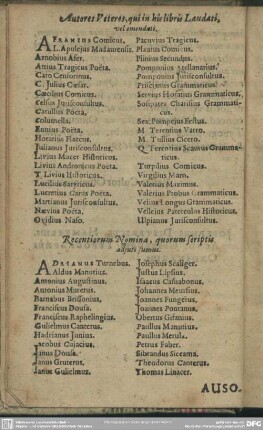 Autores Veteres, qui in his libris Laudati,
vel emendati.
AFRANIUS Comicus.
L. Apulejus Madaurensis.
Arnobius Afer.
Attius Tragicus Poëta.
Cato Censorinus.
C. Julius Cæsar.
Cæcilius Comicus.
Celsus Jurisconsultus.
Catullus Poëta.
Columella.
Ennius Poëta.
Horatius Flaccus.
Julianus Jurisconsultus.
Livius Macer Historicus.
Livius Andronicus Poëta.
T. Livius Historicus.
Lucilius Satyricus.
Lucretius Carus Poëta.
Martianus Jurisconsultus.
Nævius Poëta.
Ovidius Naso.
Pacuvius Tragicus.
Plautus Comicus.
Plinius Secundus.
Pomponius Atellanarius.
Pomponius Jurisconsultus.
Priscianus Grammaticus.
Servius Honoratus Grammaticus.
Sosipater Charisius Grammati-
cus.
Sex: Pompejus Festus.
M. Terentius Varro.
M. Tullius Cicero.
Q. Terentius Scaurus Gramma-
ticus.
Turpilius Comicus.
Virgilius Maro.
Valerius Maximus.
Valerius Probus Grammaticus.
Velius Longus Grammaticus.
Vellejus Paterculus Historicus.
Ulpianus Jurisconsultus.
Recentiorum Nomina, quorum scriptis
adjuti sumus.
ADRIANUS Turnebus.
Aldus Manutius.
Antonius Augustinus.
Antonius Muretus.
Barnabas Brissonius.
Franciscus Dousa.
Franciscus Raphelingius.
Gulielmus Canterus.
Hadrianus Junius.
Jacobus Cujacius.
Janus Dousa.
Janus Gruterus.
Janus Gulielmus.
Josephus Scaliger.
Justus Lipsius.
Isaacus Casaubonus.
Johannes Meursius.
Joannes Fungerus.
Joannes Pontanus.
Obertus Gifanius.
Paullus Manutius.
Paullus Merula.
Petrus Faber.
Sibrandus Siccama.
Theodorus Canterus.
Thomas Linacer.
AUSO.